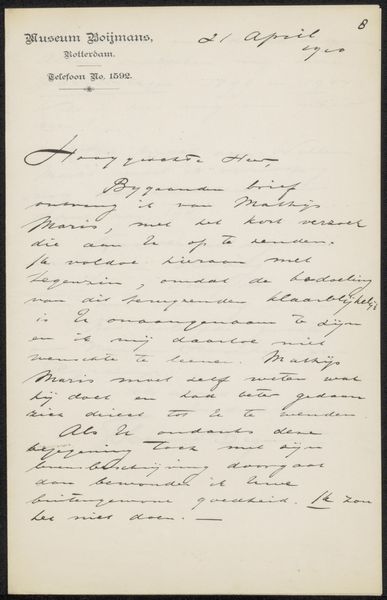 8
Museum Boijmans,
Rotterdam.
Telefoon No. 1592.
21 April
1910
Hooggeachte Heer,
Bijgaanden brief
ontving ik van Mathijs
Maris, met het kort verzoek
die aan U op te zenden.
Ik voldoe hieraan met
tegenzin, omdat de bedoeling
van dit terugzenden klaarblijkelijk
is U onaangenaam te zijn
en ik mij daartoe niet
wenschte te leenen. Mathijs
Maris moet zelf weten wat
hij doet en had beter gedaan
zich direct tot U te wenden.
Als U ondanks deze
bejegening toch met zijn
levensbeschrijving doorgaat
dan bewonder ik Uwe
buitengewone goedheid. Ik zou
het niet doen. —